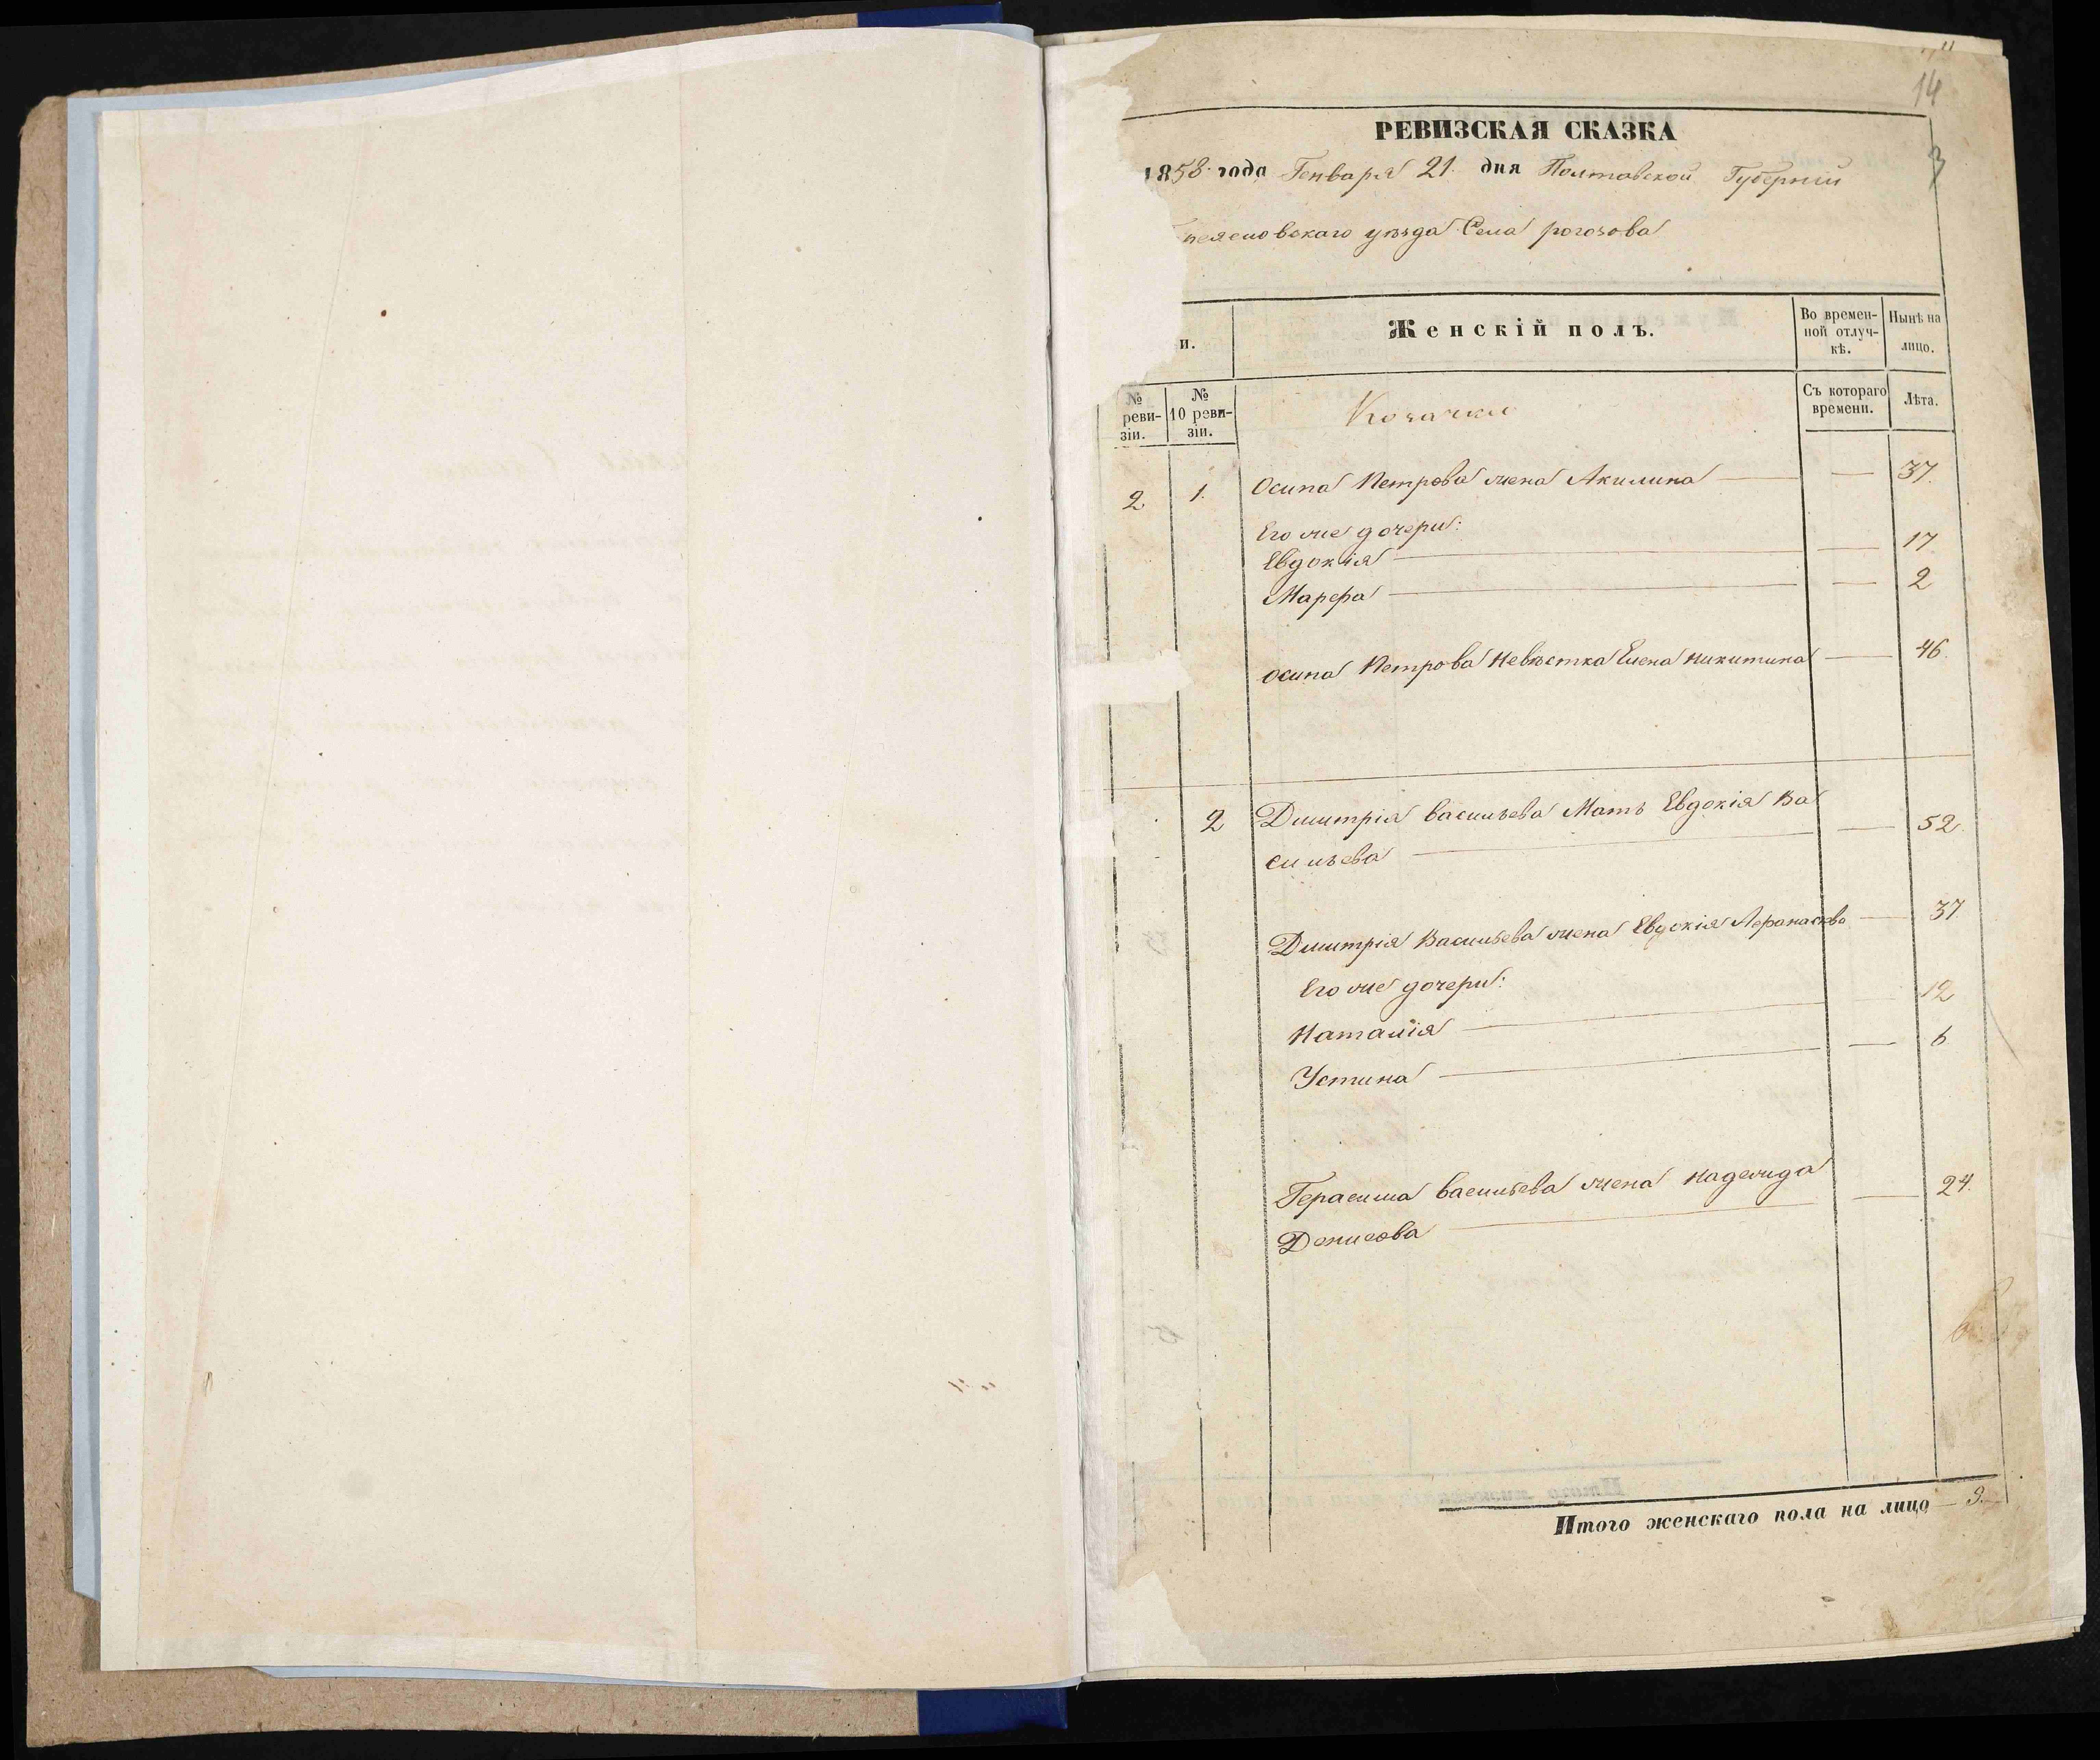 14
РЕВИЗСКАЯ СКАЗКА
1858 года Генваря 21 дня Полтавской Губернии
3
реяславскаго уѣзда Села рогозова
и.
Женскій полъ.
Во времен-
ной отлуч-
кѣ.
Нынѣ на
лицо.
№
реви-
зіи.
№
10 реви-
зіи.
Козачки
Съ котораго
времени.
Лѣта.
2 1. Осипа Петрова жена Акилина — — 37.
Его же дочери:
Евдокія — — 17
Марфа — — 2
Осипа Петрова Невѣстка Елена Никитина — 46.
2 Димитрія васильева Мать Евдокія Ва
сильева — — 52.
Димитрія Васильева жена Евдокія Афанасіева — 37
Его же дочери:
Наталія — 12
Устина — — 6
Герасима васильева жена Надежда
Денисова — — 24.
Итого женскаго пола на лицо — 9.